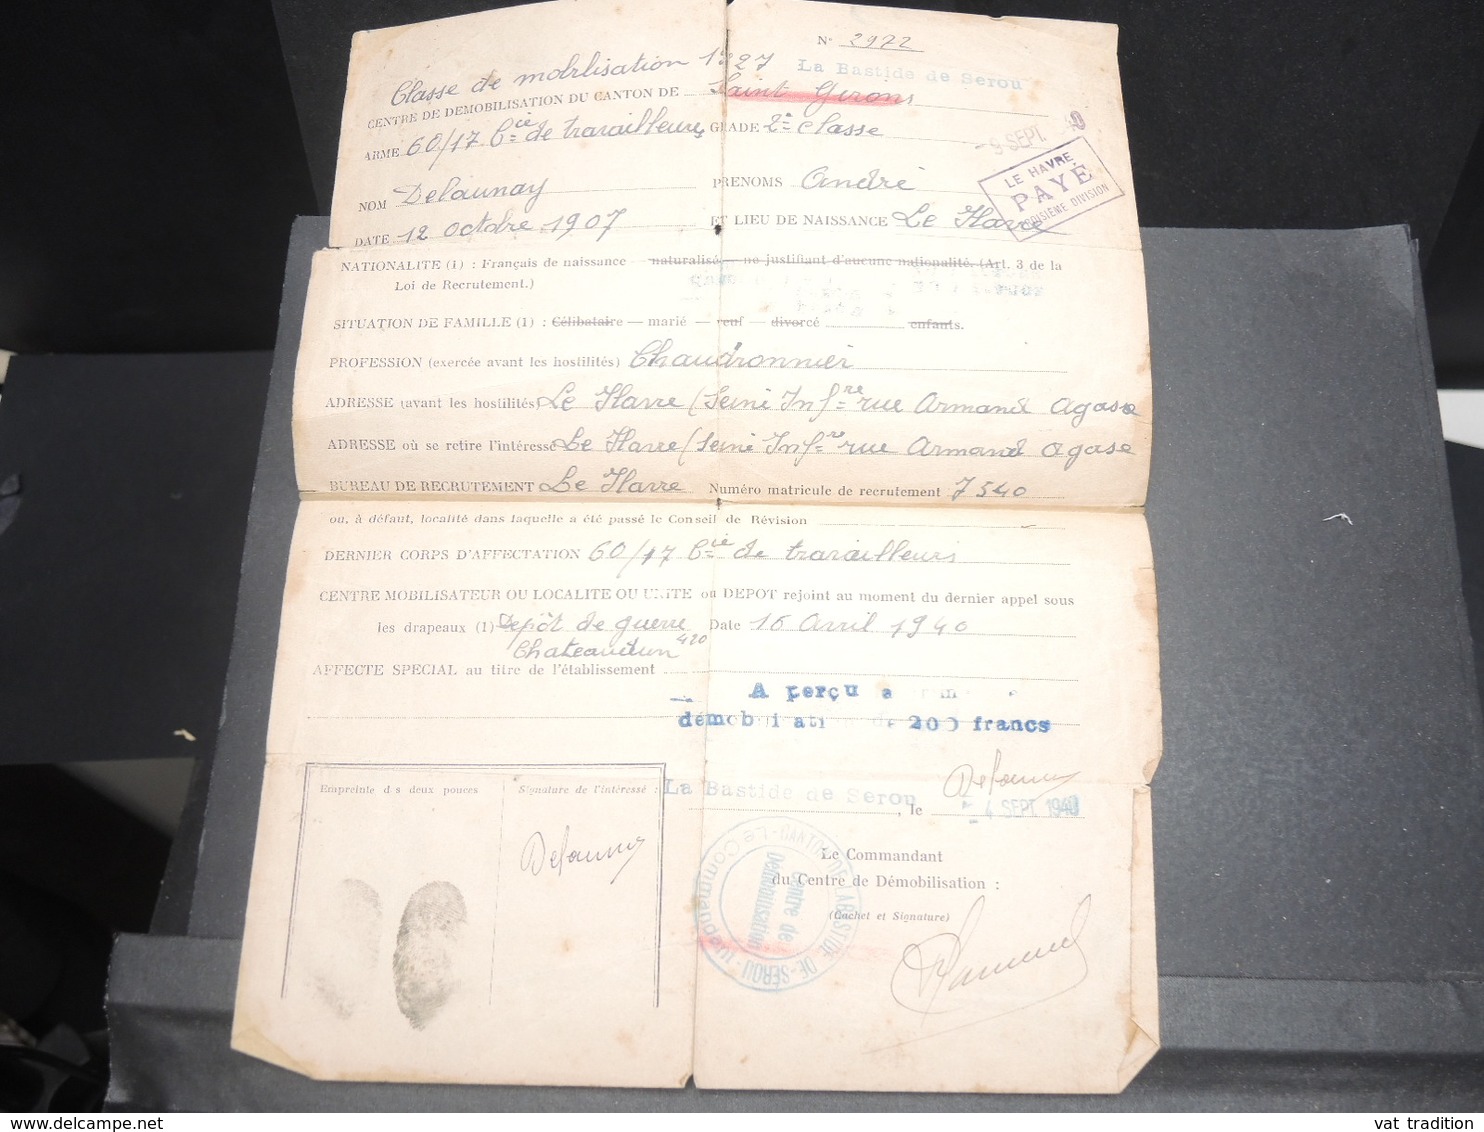 N° 2972
Classe de mobilisation 1927
La Bastide de Serou
CENTRE DE DÉMOBILISATION DU CANTON DE Saint Girons
ARME 60/17 Cie de travailleurs GRADE 2e classe
- 9 SEPT. 40
LE HAVRE
PAYÉ
TROISIÈME DIVISION
NOM Delaunay PRENOMS André
DATE 12 octobre 1907 ET LIEU DE NAISSANCE Le Havre
NATIONALITE (1) : Français de naissance — naturalisé — ne justifiant d'aucune nationalité. (Art. 3 de la
Loi de Recrutement.)
SITUATION DE FAMILLE (1) : Célibataire — marié — veuf — divorcé enfants.
PROFESSION (exercée avant les hostilités) Chaudronnier
ADRESSE (avant les hostilités) Le Havre (Seine Infre rue Armand Agasse
ADRESSE où se retire l'intéressé Le Havre (Seine Infre rue Armand Agasse
BUREAU DE RECRUTEMENT Le Havre Numéro matricule de recrutement 7540
ou, à défaut, localité dans laquelle a été passé le Conseil de Révision
DERNIER CORPS D'AFFECTATION 60/17 Cie de travailleurs
CENTRE MOBILISATEUR OU LOCALITE OU UNITE ou DEPOT rejoint au moment du dernier appel sous
les drapeaux (1) Dépôt de guerre Date 16 Avril 1940
Chateaudun 420
AFFECTE SPECIAL au titre de l'établissement
A perçu
démobilisation de 200 francs
Delaunay
La Bastide de Serou, le - 4 SEPT. 1940
Empreinte des deux pouces
Signature de l'intéressé :
Delaunay
Le Commandant
du Centre de Démobilisation :
(Cachet et Signature)
CANTON DE LABASTIDE-DE-SÉROU
Le Commandant
Centre de
Démobilisation
vat tradition